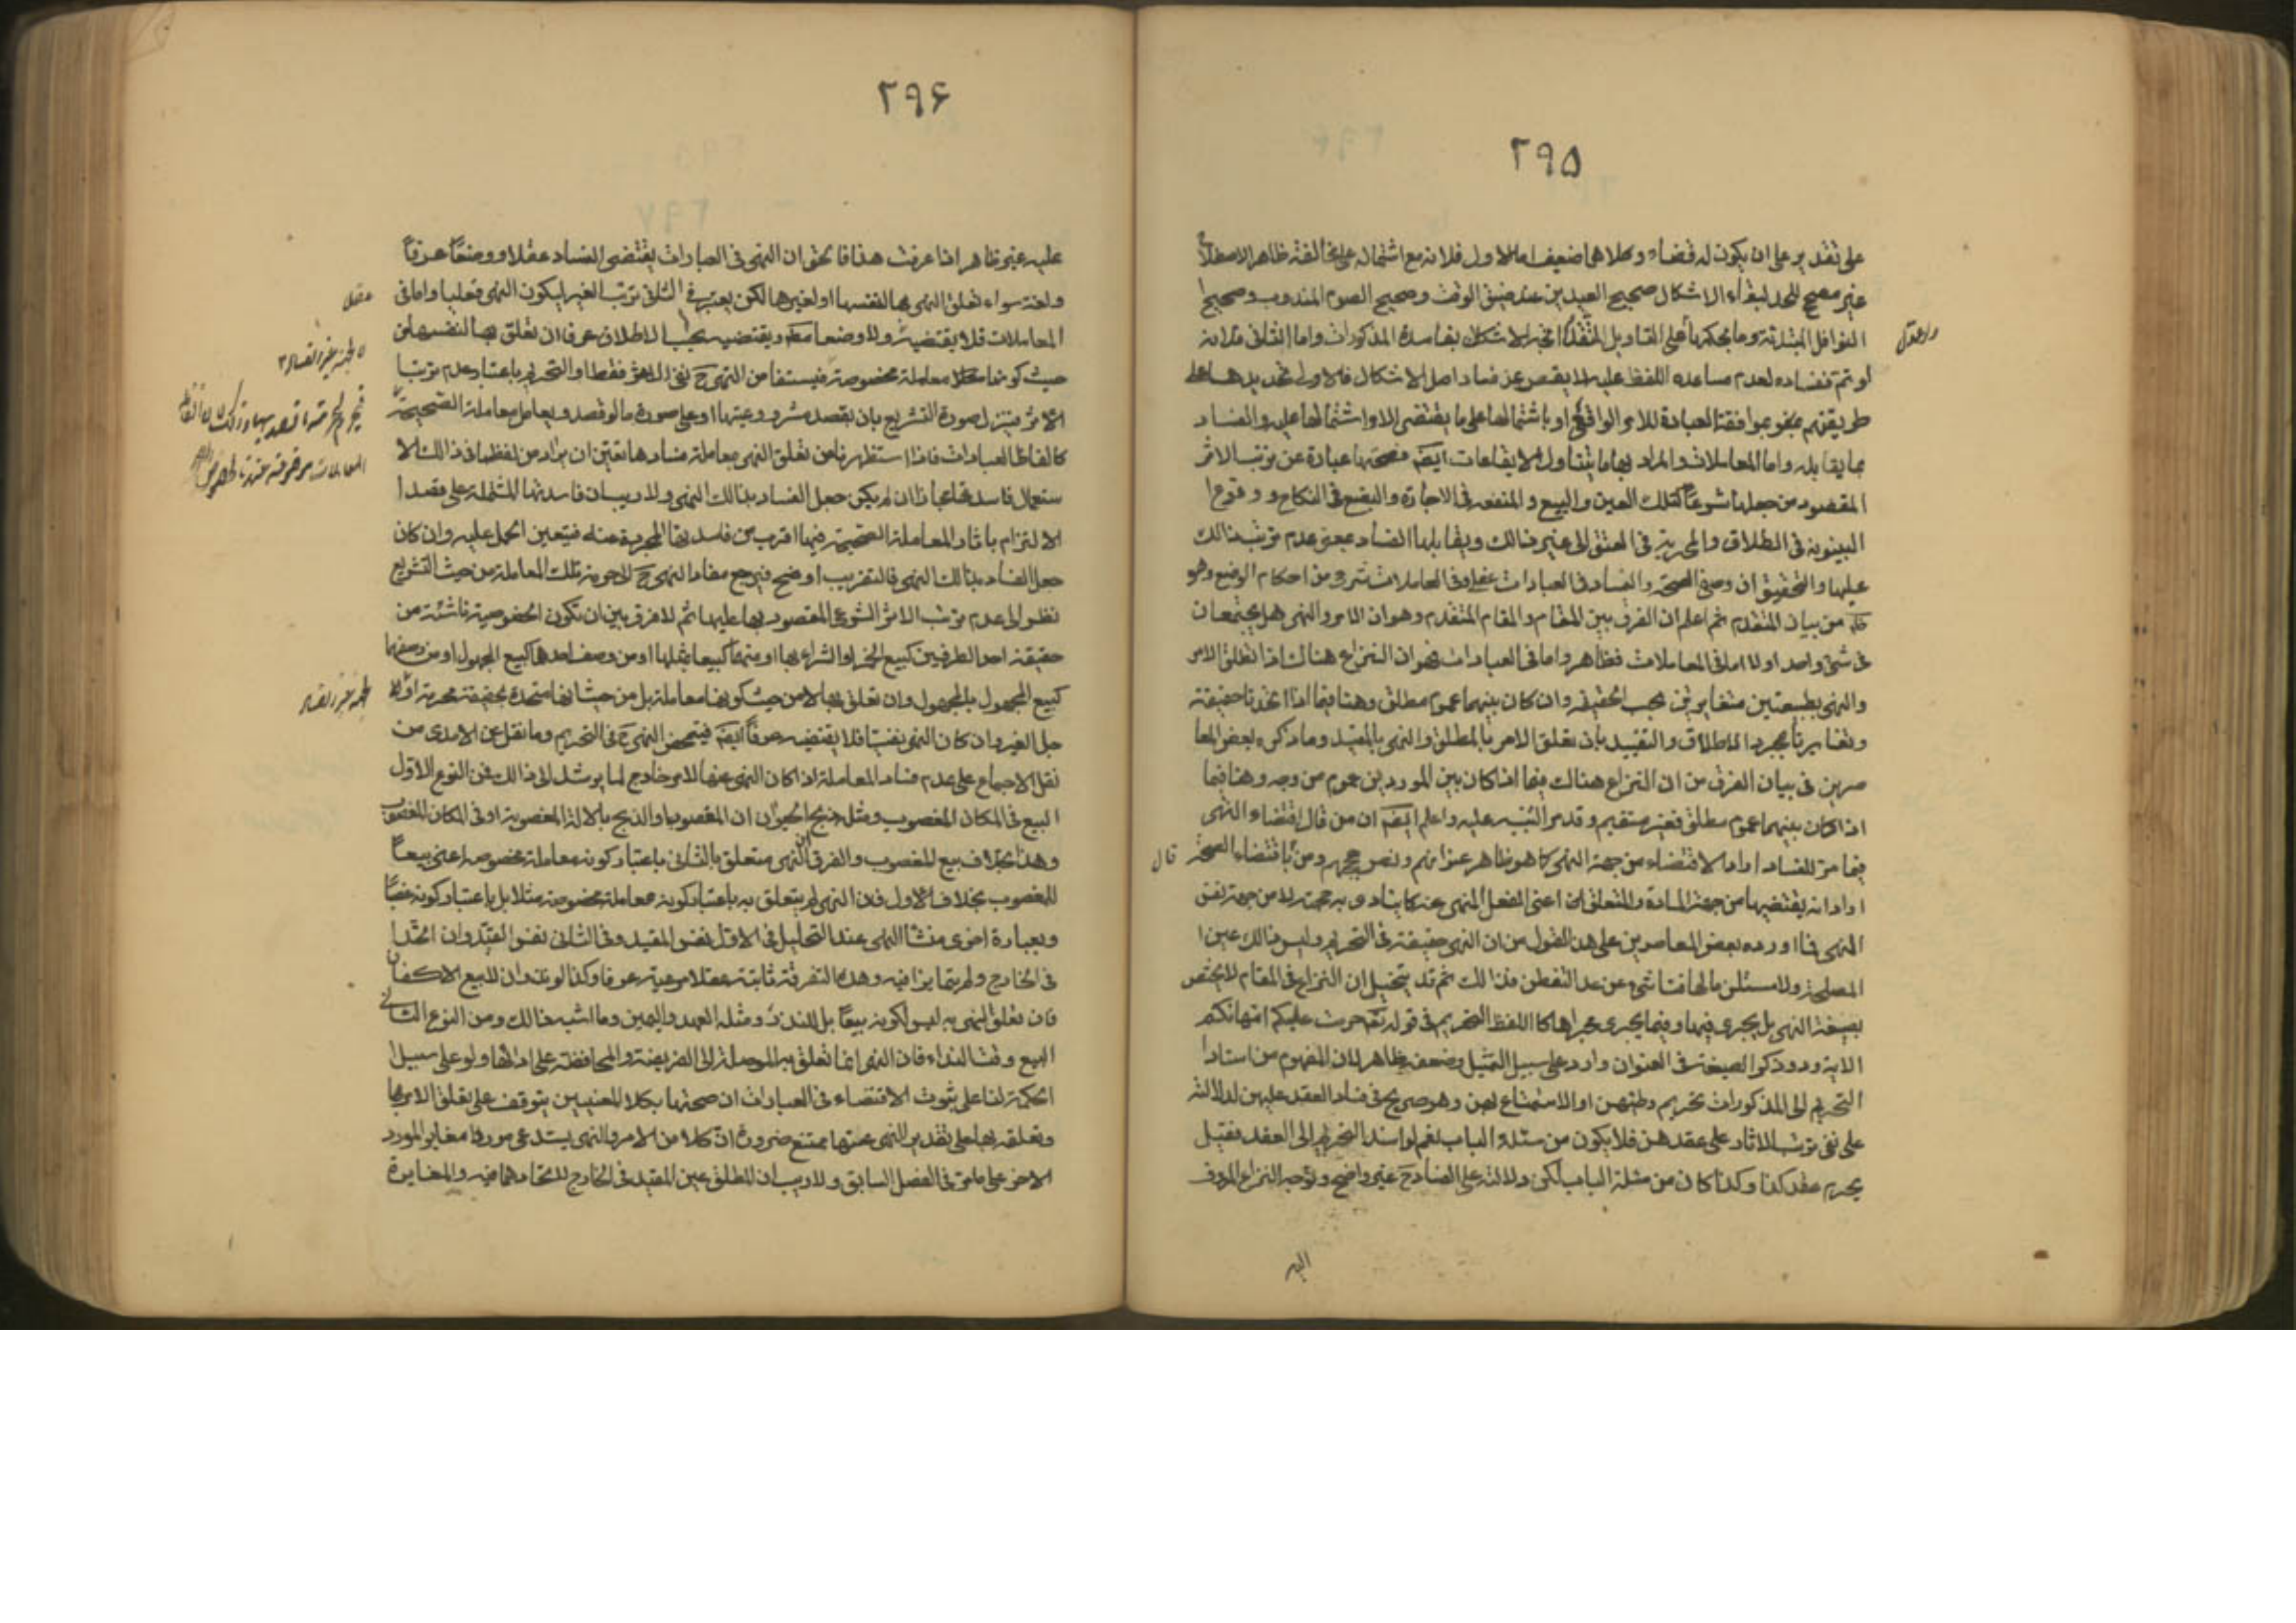 ٢٩۵
على تقدير على ان يكون له قضاء وكلاهما ضعيف اما الاول فلانه مع اشتماله على مخالفة ظاهر الاصطلاح
غير مصحح للحد لبقاء الاشكال صحيح العيدين عند ضيق الوقت وصحيح الصوم المندوب وصحيح
النوافل المبتدئة وما بحكمها على التاويل المتقدم الاشكال بفاسدة المذكورات واما الثانى فلانه
لو تم ففساده لعدم مساعدة اللفظ عليه لا يقصر عن فساد اصل الاشكال فالاولى تحديدها على
طريقتهم بموافقة العبادة للامر الواقعى او باشتمالها على ما يقتضى الامر اشتمالها عليه والفساد
بما يقابله واما المعاملات والمراد بها ما يتناول الايقاعات ايضا فصحتها عبادة عن ترتب الاثر
المقصود من جعلها شرعا كتملك العين والبيع والمنفعة فى الاجارة والبضع فى النكاح ووقوع
البينونة فى الطلاق والحرية فى العتق الى غير ذالك ويقابلها الفساد بمعنى عدم ترتب ذالك
عليها والتحقيق ان وصفى الصحة والفساد فى العبادات عقلى وفى المعاملات شرعى من احكام الوضع وهو
ظاهر من بيان المتقدم ثم اعلم ان الفرق بين المقام والمقام المتقدم وهو ان الامر والنهى هل يجتمعان
فى شئ واحد او لا اما فى المعاملات فظاهر واما فى العبادات فهو ان النزاع هناك اذا تعلق الامر
والنهى بطبيعتين متغايرتين بحسب الحقيقة وان كان بينهما عموم مطلق وهنا فيما اذا اتحدتا حقيقة
وتغايرتا بمجرد الاطلاق والتقييد بان تعلق الامر بالمطلق والنهى بالمقيد وما ذكره بعض المعا
صرين فى بيان الفرق من ان النزاع هناك فيما اذا كان بين الموردين عموم من وجه وهنا فيما
اذا كان بينهما عموم مطلق فغير مستقيم وقد مر التنبيه عليه واعلم ايضا ان من قال باقتضاء النهى
فيما مر للفساد اراد الاقتضاء من جهة النهى كما هو ظاهر عنوانهم ونص حججهم ومن قال باقتضاء الصحة
اراد انه يقتضيها من جهة المادة والمتعلق اعنى الفعل المنهى عنه كما ينادى به حجته لا من جهة نفس
النهى فما اورده بعض المعاصرين على هذا القول من ان النهى حقيقة فى التحريم وليس ذالك عين
الصحة ولا مستلزما لها فناشئ عن عدم التفطن بذالك ثم قد يتخيل ان النزاع فى المقام لا يختص
بصيغة النهى بل يجرى فيها وفيما يجرى مجراها كاللفظ التحريم فى قوله تعالى حرمت عليكم امهاتكم
الاية وورود ذكر الصيغة فى العنوان وارد على سبيل التمثيل وضعفه ظاهر لان المفهوم من اسناد
التحريم الى المذكورات تحريم وطئهن او الاستمتاع بهن وهو صريح فى فساد العقد عليهن لدلالته
على نفى ترتب الاثار على عقدهن فلا يكون من مسئلة الباب نعم لو اسند التحريم الى العقد فقيل
يحرم عقد كذا وكذا كان من مسئلة الباب لكن دلالته على الفساد ح غير واضح وتوجه النزاع المعروف
اليه
٢٩۶
عليه غير ظاهر اذا عرفت هذا فالحق ان النهى فى العبادات يقتضى الفساد عقلا ووضعا عرفا
ولغة سواء تعلق النهى بها لنفسها او لغيرها لكن يعتبر فى الثانى ترتب الغير ليكون النهى فعليا واما فى
المعاملات فلا يقتضيه ولا وضعا مطلقا ويقتضيه بحسب الاطلاق عرفا ان تعلق بها لنفسها من
حيث كونها معاملة مخصوصة فيستفاد من النهى ح نفى الاثر فقط او التحريم باعتبار عدم ترتب
الاثر بتنزيله صورة التشريع بان يقصد مشروعيتها او على صورة ما لو قصد ويعامل معاملة الصحيحة
كالفاظ العبادات فاذا استظهرنا من تعلق النهى بمعاملة فسادها تعين ان يراد من لفظها فى ذالك الا
ستعمال فاسدها مجازا ان لم يكن جعل الفساد بذالك النهى ولا ريب ان فاسدتها المشتملة على قصد
الالتزام باثار المعاملة الصحيحة فيها اقرب من فاسدتها المجردة عنه فيتعين الحمل عليه وان كان
جعل الفساد بذالك النهى فالتقريب اوضح فيرجع مفاد النهى ح لاحرمة تلك المعاملة من حيث التشريع
نظرا الى عدم ترتب الاثر الشرعى المقصود بها عليها ثم لا فرق بين ان تكون الخصوصية ناشئة من
حقيقة احد الطرفين كبيع الخمر او الشراء بها او منهما كبيعها بمثلها او من وصف احدهما كبيع المجهول او من وصفهما
كبيع المجهول بالمجهول وان تعلق بها لا من حيث كونها معاملة بل من حيث انها متحدة بحقيقة محرمة او لا
جل الغير وان كان النهى نفسيا فلا يقتضيه عرفا ايضا فيتمحض النهى ح فى التحريم وما نقل عن الامدى من
نقل الاجماع على عدم فساد المعاملة اذا كان النهى عنها لامر خارج لها يرشد الى ذالك فمن النوع الاول
البيع فى المكان المغصوب ومثل ذبح الحيوان المغصوب او الذبح بالالة المغصوبة او فى المكان المغصوب
وهذا بخلاف بيع المغصوب والفرق ان النهى متعلق بالثانى باعتبار كونه معاملة مخصوصة اعنى بيعا
للمغصوب بخلاف الاول فان النهى لم يتعلق به باعتبار كونه معاملة مخصوصة مثلا بل باعتبار كونه غصبا
وبعبارة اخرى منشا النهى عند التحليل فى الاول نفس المقيد وفى الثانى نفس القيد وان اتحدا
فى الخارج ولم يتمايزا فيه وهذه التفرقة ثابتة عقلا مرعية عرفا وكذا لو نذر ان لا يبيع الاكفان
فان تعلق النهى به ليس لكونه بيعا بل للنذر ومثله العهد واليمين وما اشبه ذالك ومن النوع الثانى
البيع وقت النداء فان النهى انما تعلق به للوصلة الى الفريضة والمحافظة على ادائها ولو على سبيل
الحكمة لنا على ثبوت الاقتضاء فى العبادات ان صحتها بكلا المعنيين يتوقف على تعلق الامر بها
وتعلقه بها على تقدير النهى عنها ممتنع ضرورة ان كلا من الامر والنهى يستدعى موردا مغاير المورد
الاخر على ما مر فى الفصل السابق ولا ريب ان المطلق عين المقيد فى الخارج لاتحادهما فيه والمغايرة